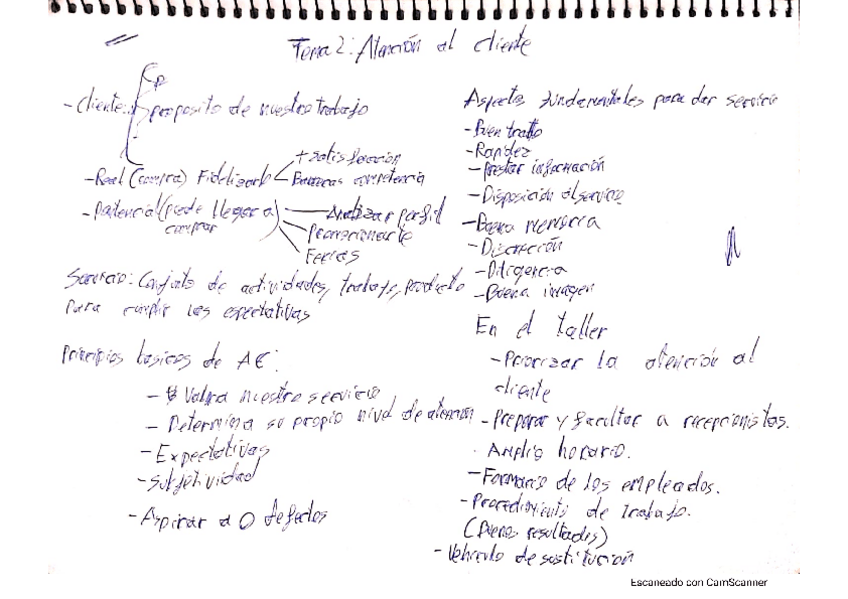 Tema 2: Atención al cliente
- Cliente: proposito de nuestro trabajo
- Real (compra) Fidelizarlo
+ satisfacción
Barreras competencia
- Potencial (puede llegar a
comprar)
Analizar perfil
Promocionarte
Ferias
Servicio: Conjunto de actividades, trabajo, producto
para cumplir las espectativas
Principios basicos de AC:
- Valora nuestro servicio
- Determina su propio nivel de atencion
- Expectativas
- Subjetividad
- Aspirar a 0 defectos
Aspectos fundamentales para dar servicio
- Buen trato
- Rapidez
- prestar información
- Disposición al servicio
- Buena memoria
- Discrección
- Diligencia
- Buena imagen
En el taller
- Priorizar la atención al
cliente
- Preparar y facultar a recepcionistas.
Amplio horario.
- Formario de los empleados.
- Procedimiento de trabajo.
(Buenos resultados)
- Vehiculo de sustitución
Escaneado con CamScanner